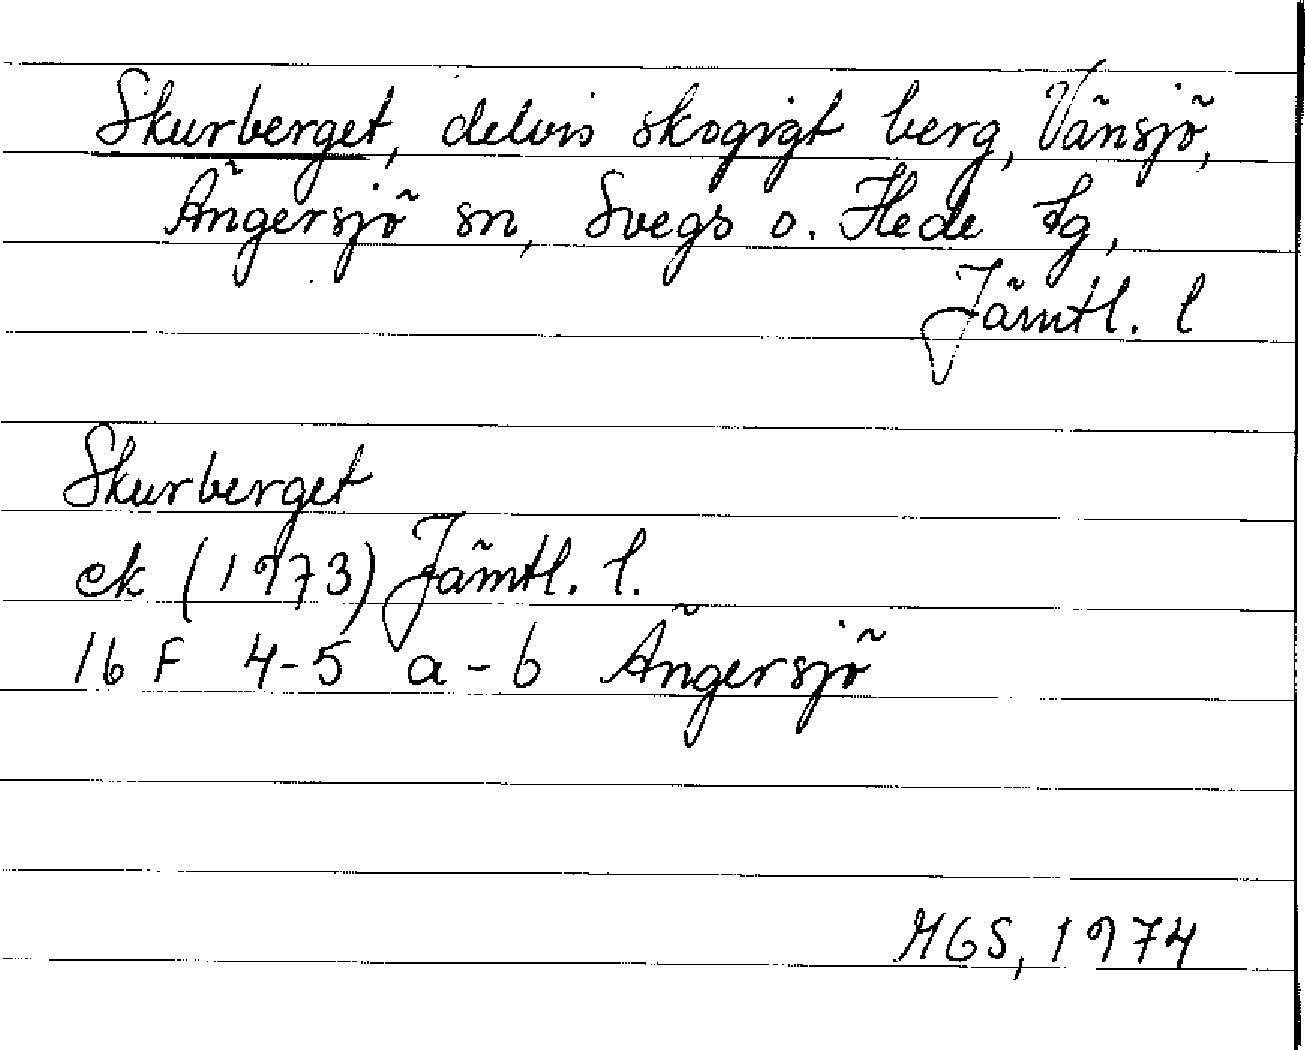 Skurberget, delvis skogigt berg, Vänsjö,
Ängersjö sn, Svegs o. Hede tg,
Jämtl. l
Skurberget
ek (1973) Jämtl. l.
16 F 4-5 a-b Ängersjö
MGS, 1974